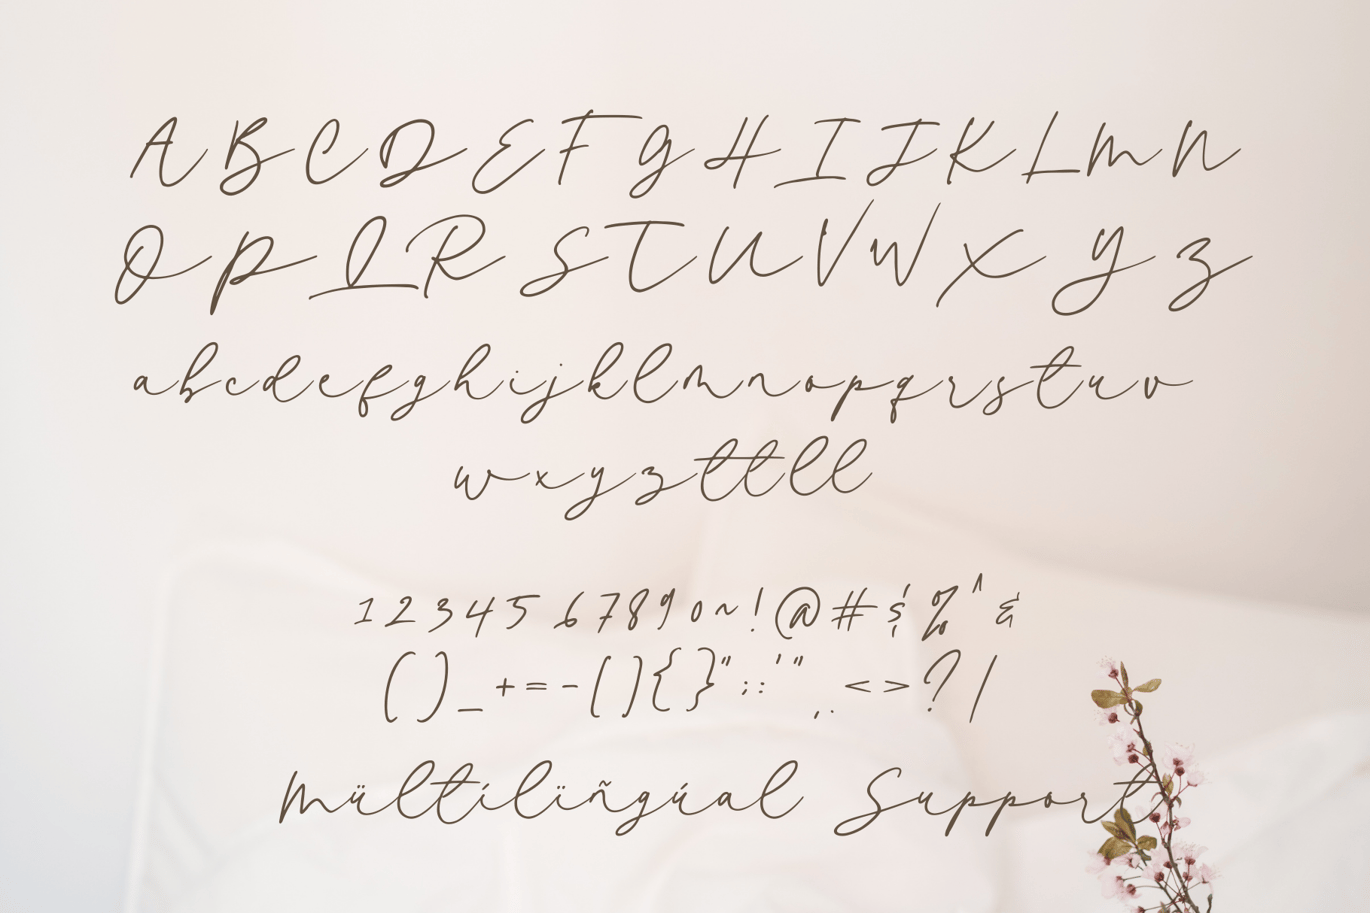 A B C D E F G H I J K L M N
O P Q R S T U V W X Y Z
a b c d e f g h i j k l m n o p q r s t u v
w x y z tt ll
1 2 3 4 5 6 7 8 9 0 ~ ! @ # $ % ^ &
( ) _ + = - [ ] { } " ; : ' " , . < > ? /
Mültílïñgúal Support